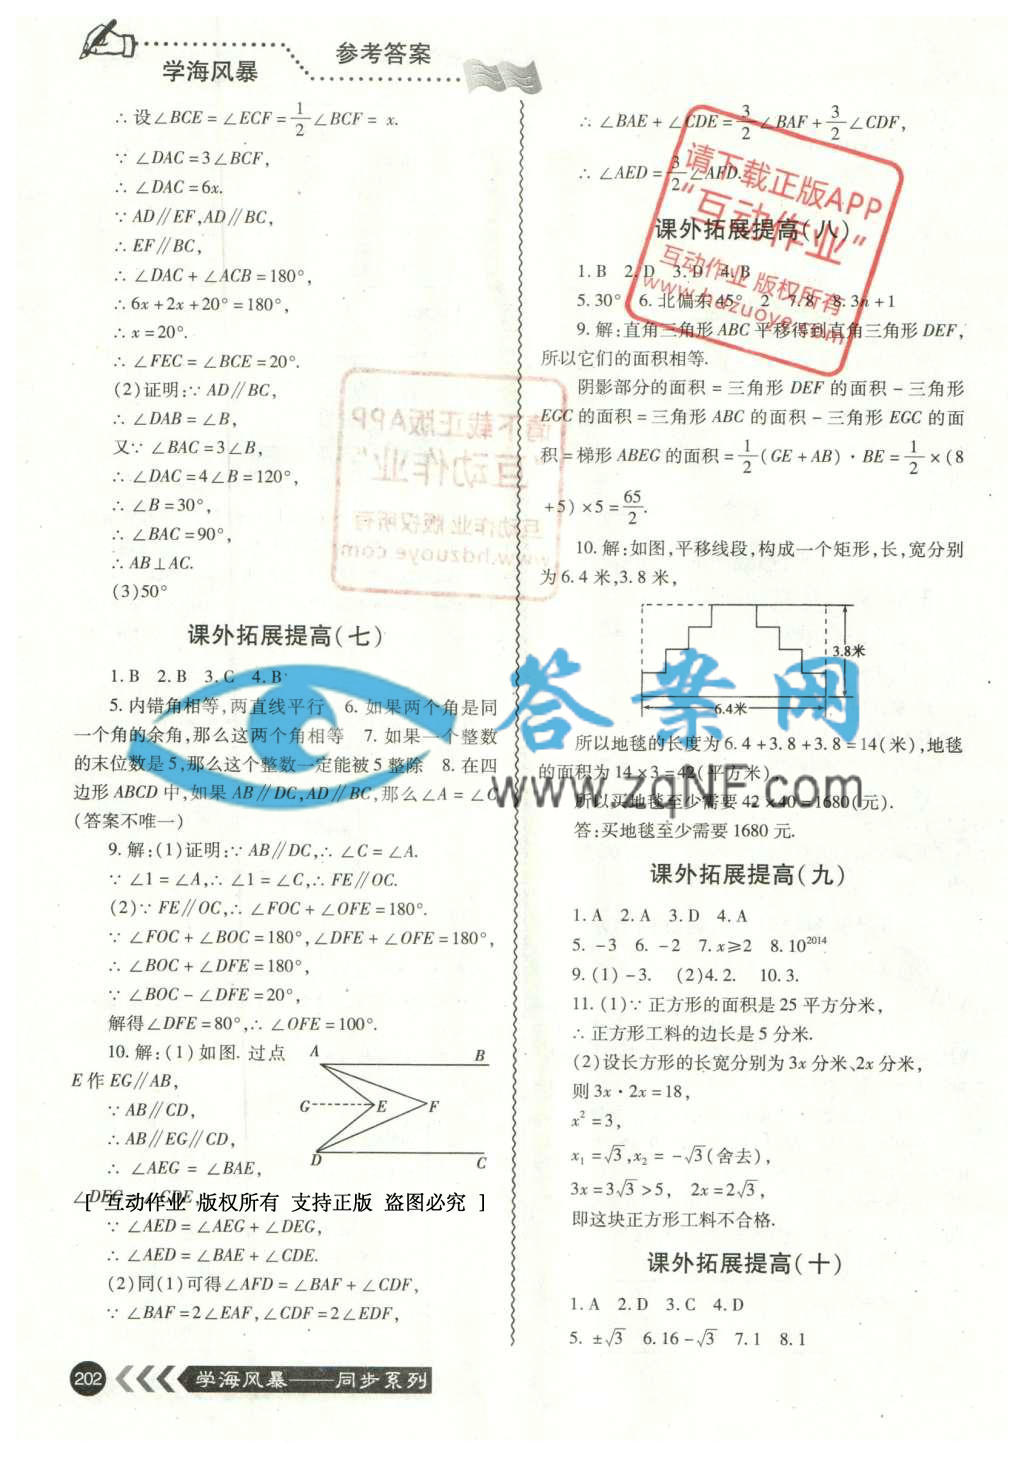 学海风暴
参考答案
∴ 设∠BCE = ∠ECF = 1/2 ∠BCF = x.
∵ ∠DAC = 3∠BCF,
∴ ∠DAC = 6x.
∵ AD∥EF,AD∥BC,
∴ EF∥BC,
∴ ∠DAC + ∠ACB = 180°,
∴ 6x + 2x + 20° = 180°,
∴ x = 20°.
∴ ∠FEC = ∠BCE = 20°.
(2)证明:∵ AD∥BC,
∴ ∠DAB = ∠B,
又∵ ∠BAC = 3∠B,
∴ ∠DAC = 4∠B = 120°,
∴ ∠B = 30°,
∴ ∠BAC = 90°,
∴ AB⊥AC.
(3)50°
课外拓展提高(七)
1. B 2. B 3. C 4. B
5. 内错角相等,两直线平行 6. 如果两个角是同
一个角的余角,那么这两个角相等 7. 如果一个整数
的末位数是5,那么这个整数一定能被5整除 8. 在四
边形 ABCD 中,如果 AB∥DC,AD∥BC,那么∠A = ∠C
(答案不唯一)
9. 解:(1)证明:∵ AB∥DC,∴ ∠C = ∠A.
∵ ∠1 = ∠A,∴ ∠1 = ∠C,∴ FE∥OC.
(2)∵ FE∥OC,∴ ∠FOC + ∠OFE = 180°.
∵ ∠FOC + ∠BOC = 180°,∠DFE + ∠OFE = 180°,
∴ ∠BOC + ∠DFE = 180°,
∵ ∠BOC - ∠DFE = 20°,
解得∠DFE = 80°,∴ ∠OFE = 100°.
10. 解:(1)如图. 过点
E 作 EG∥AB,
∵ AB∥CD,
∴ AB∥EG∥CD,
∴ ∠AEG = ∠BAE,
∠DEG = ∠CDE,
A B
G E F
D C
[ 互动作业 版权所有 支持正版 盗图必究 ]
∵ ∠AED = ∠AEG + ∠DEG,
∴ ∠AED = ∠BAE + ∠CDE.
(2)同(1)可得∠AFD = ∠BAF + ∠CDF,
∵ ∠BAF = 2∠EAF,∠CDF = 2∠EDF,
∴ ∠BAE + ∠CDE = 3/2 ∠BAF + 3/2 ∠CDF,
∴ ∠AED = 3/2 ∠AFD.
课外拓展提高(八)
1. B 2. D 3. D 4. B
5. 30° 6. 北偏东45° 2 7. 8 8. 3n + 1
9. 解:直角三角形 ABC 平移得到直角三角形 DEF,
所以它们的面积相等.
阴影部分的面积 = 三角形 DEF 的面积 - 三角形
EGC 的面积 = 三角形 ABC 的面积 - 三角形 EGC 的面
积 = 梯形 ABEG 的面积 = 1/2 (GE + AB) · BE = 1/2 × (8
+ 5) × 5 = 65/2.
10. 解:如图,平移线段,构成一个矩形,长,宽分别
为 6. 4 米,3. 8 米,
3.8米
6.4米
所以地毯的长度为 6. 4 + 3. 8 + 3. 8 = 14(米),地毯
的面积为 14 × 3 = 42(平方米).
所以买地毯至少需要 42 × 40 = 1680(元).
答:买地毯至少需要 1680 元.
课外拓展提高(九)
1. A 2. A 3. D 4. A
5. -3 6. -2 7. x≥2 8. 10²⁰¹⁴
9. (1) -3. (2)4. 2. 10. 3.
11. (1)∵ 正方形的面积是 25 平方分米,
∴ 正方形工料的边长是 5 分米.
(2)设长方形的长宽分别为 3x 分米、2x 分米,
则 3x · 2x = 18,
x² = 3,
x₁ = √3,x₂ = -√3(舍去),
3x = 3√3 > 5, 2x = 2√3,
即这块正方形工料不合格.
课外拓展提高(十)
1. A 2. D 3. C 4. D
5. ±√3 6. 16 - √3 7. 1 8. 1
请下载正版APP
“互动作业”
互动作业 版权所有
www.hdzuoye.com
请下载正版APP
“互动作业”
互动作业 版权所有
www.hdzuoye.com
答案网
www.zqNF.com
202
学海风暴——同步系列